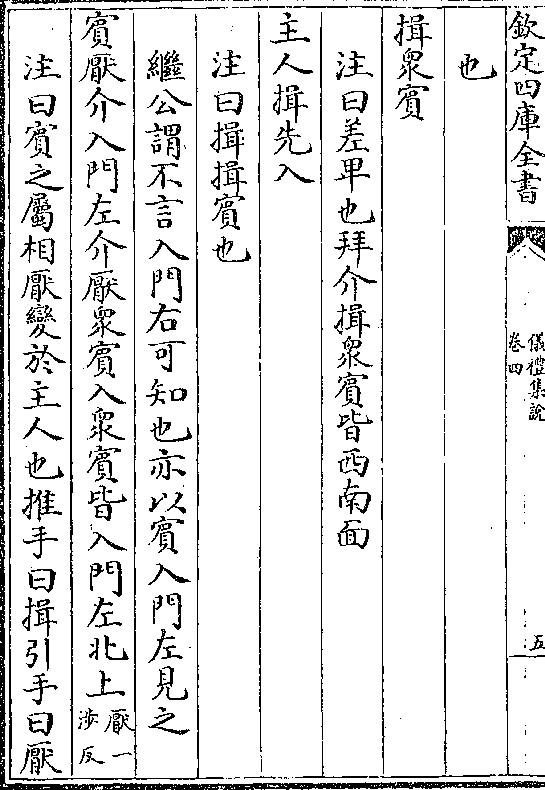 欽定四庫全書
儀禮集說
卷四
五
也
揖衆賓
注曰差卑也拜介揖衆賓皆西南面
主人揖先入
注曰揖揖賓也
繼公謂不言入門右可知也亦以賓入門左見之
賓厭介入門左介厭衆賓入衆賓皆入門左北上厭一涉反
注曰賓之屬相厭變於主人也推手曰揖引手曰厭